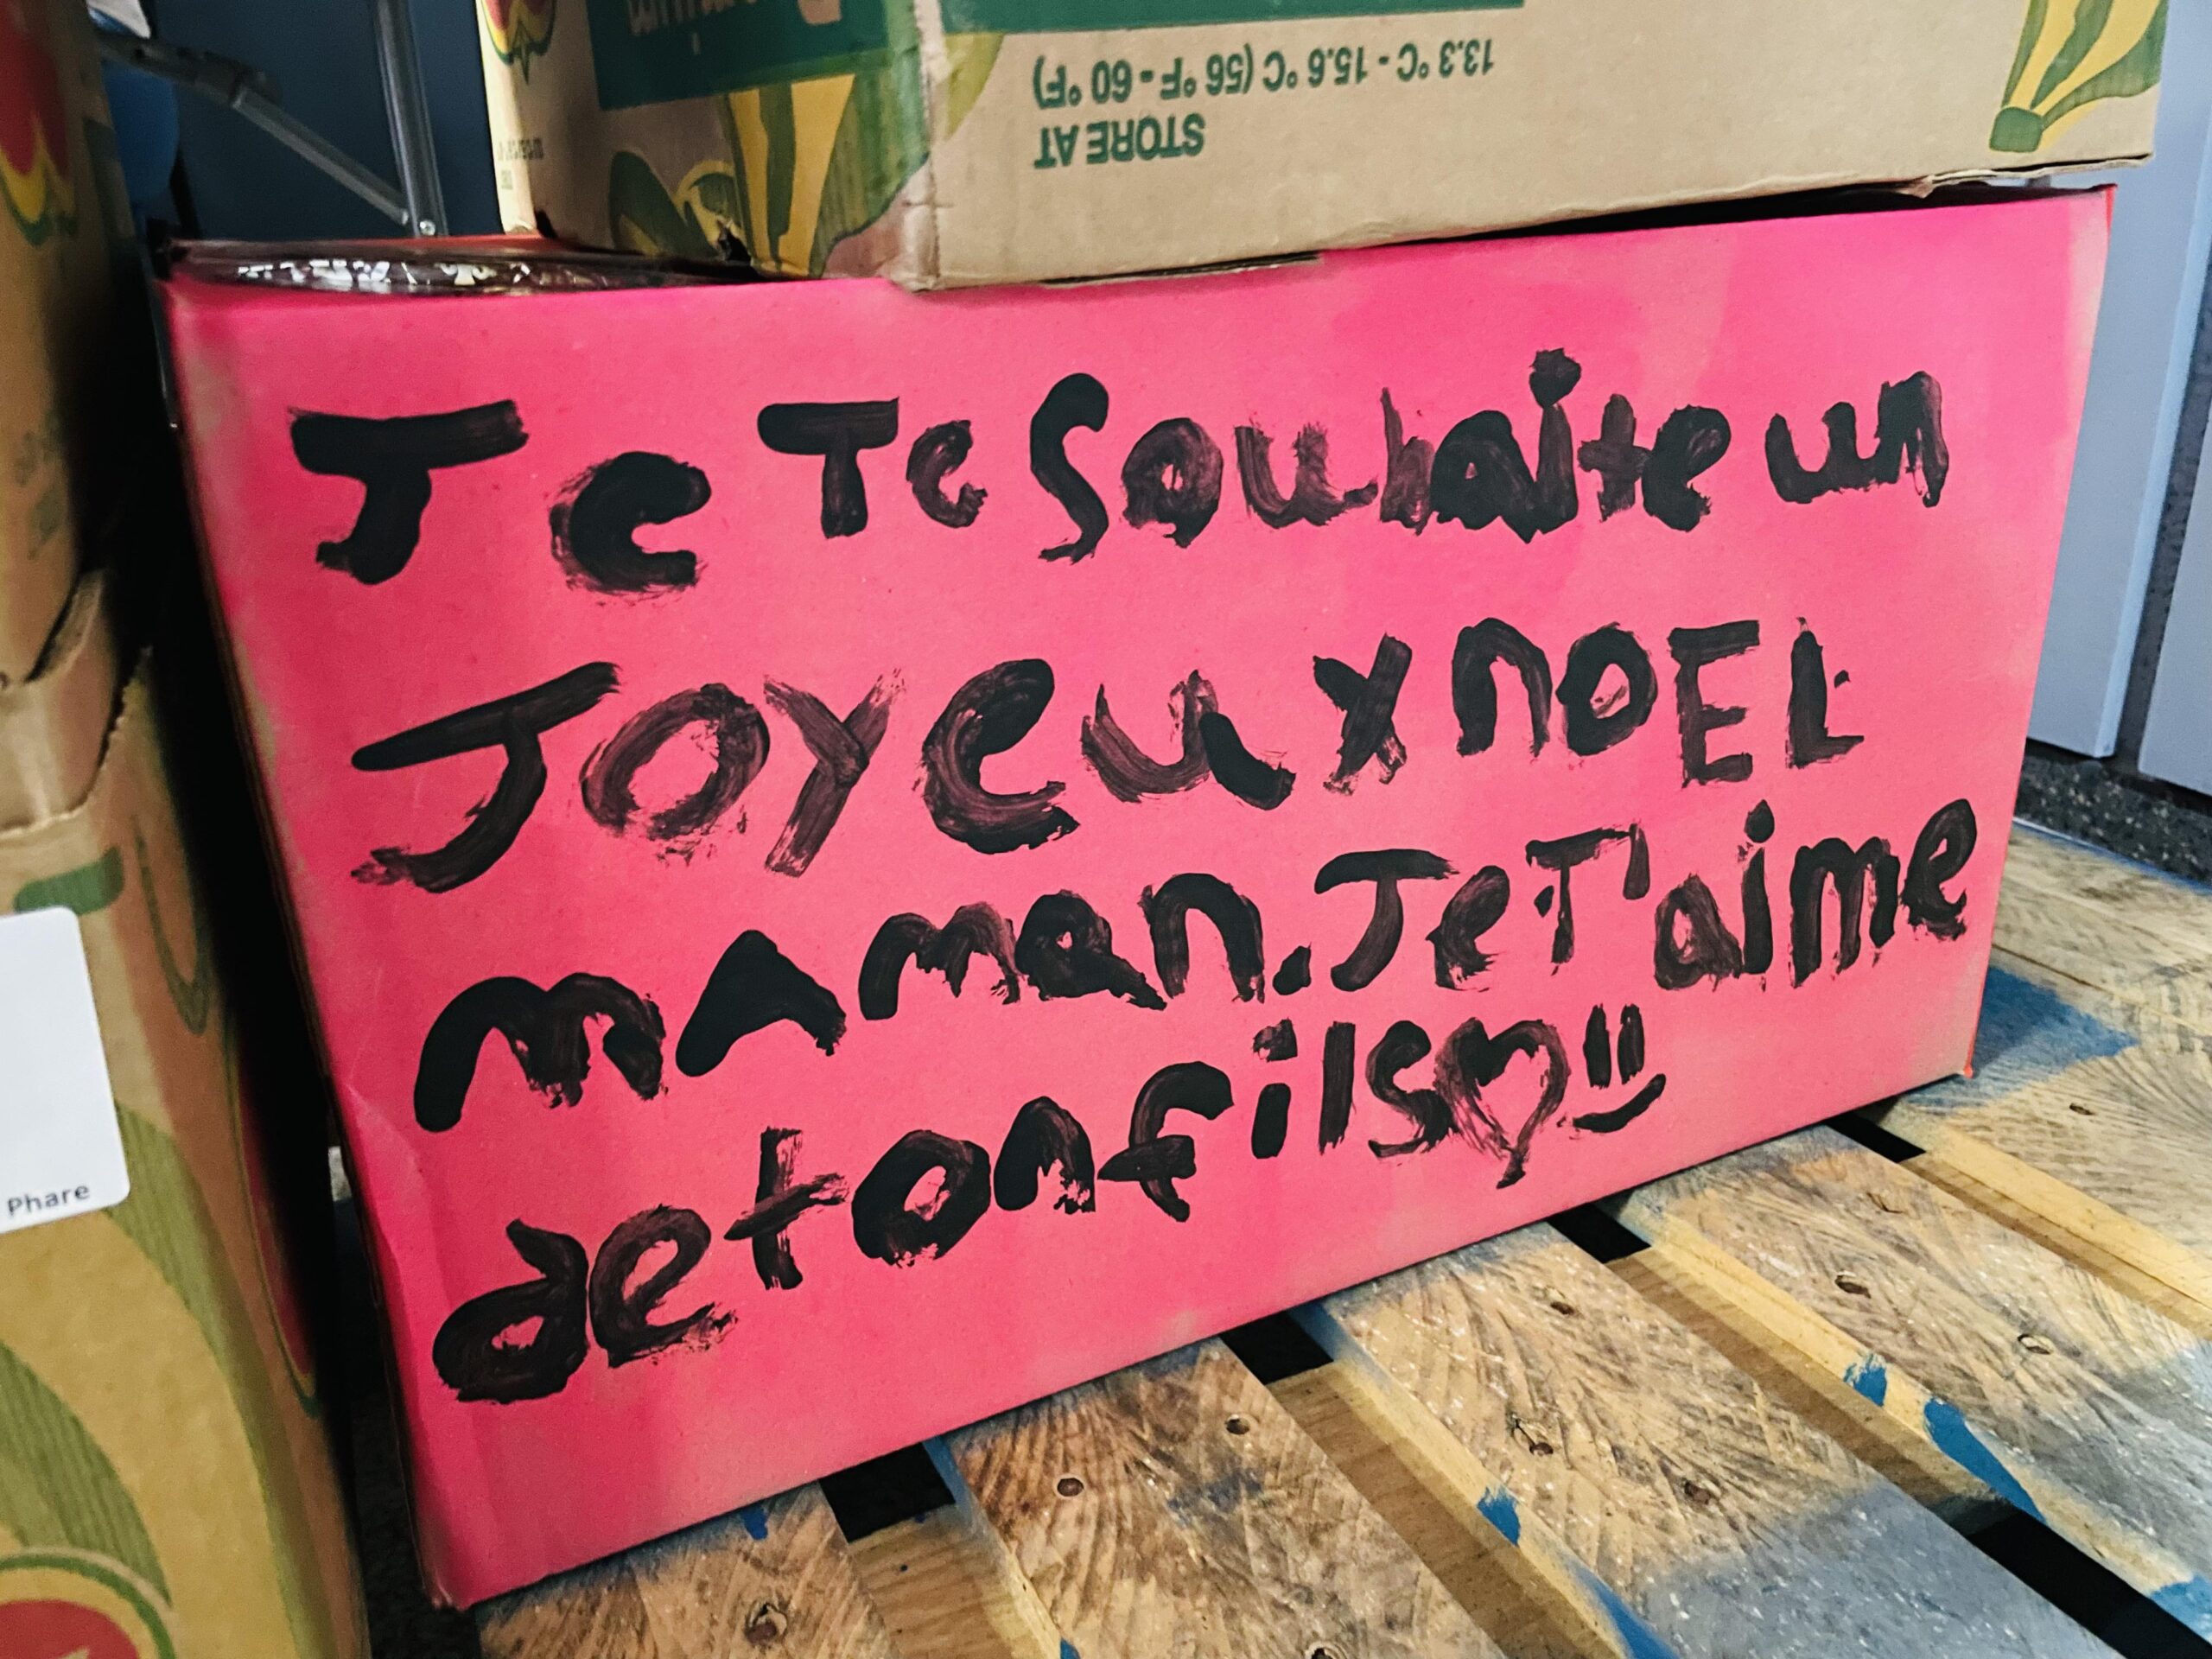 STORE AT
13.3 °C - 15.6 °C (56 °F - 60 °F)
Je Te Souhaite un
Joyeux noEL
maman. Je T'aime
de ton fils ♡
Phare